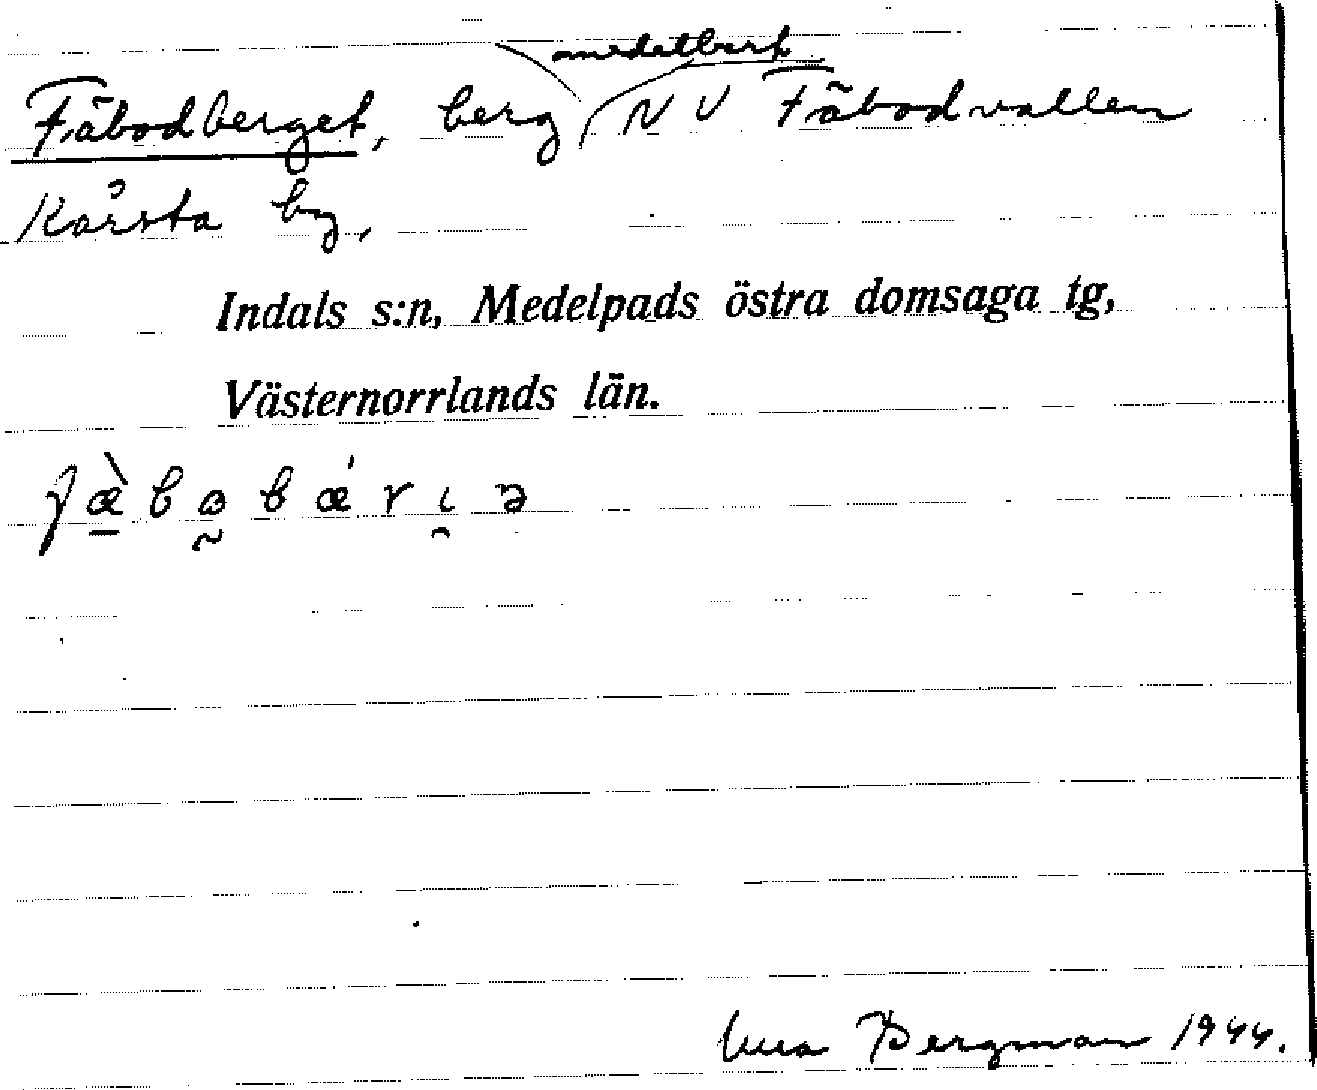 Fäbodberget, berg omedelbart NV Fäbodvallen
Kårsta by,
Indals s:n, Medelpads östra domsaga tg,
Västernorrlands län.
Bergman 1944.